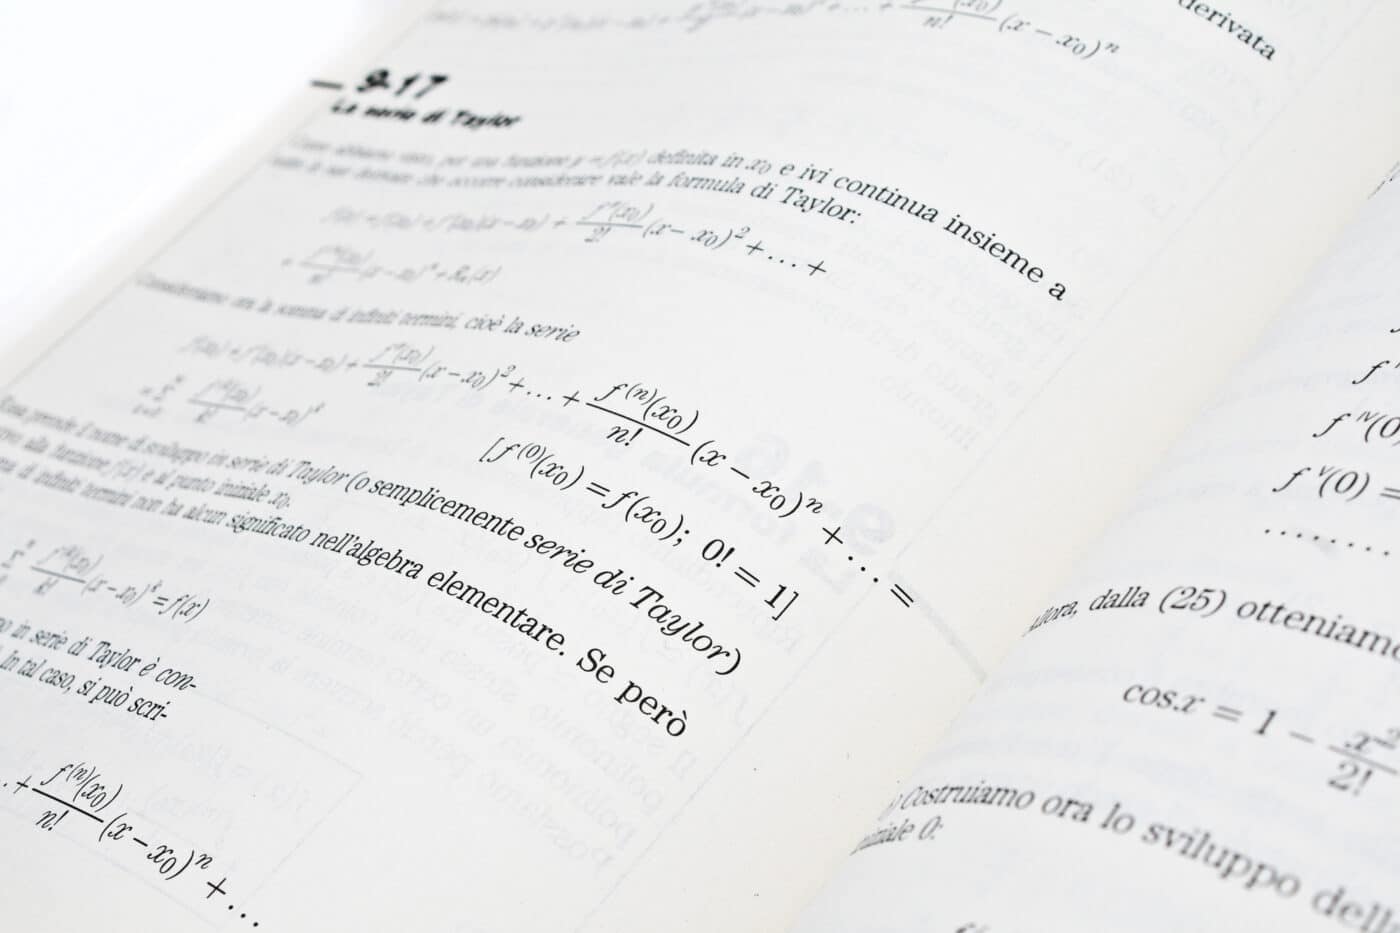 derivata
f^{(n)}(x₀)/n! (x − x₀)ⁿ
9·17
La serie di Taylor
Come abbiamo visto, per una funzione y = f(x) definita in x₀ e ivi continua insieme a
che occorre considerare vale la formula di Taylor:
f(x) = f(x₀) + f'(x₀)(x − x₀) + f''(x₀)/2! (x − x₀)² + ... +
+ f⁽ⁿ⁾(x₀)/n! (x − x₀)ⁿ + Rₙ(x)
Consideriamo ora la somma di infiniti termini, cioè la serie
f(x₀) + f'(x₀)(x − x₀) + f''(x₀)/2! (x − x₀)² + ... + f⁽ⁿ⁾(x₀)/n! (x − x₀)ⁿ + ... =
= Σ f⁽ᵏ⁾(x₀)/k! (x − x₀)ᵏ
[f⁽⁰⁾(x₀) = f(x₀); 0! = 1]
Essa prende il nome di sviluppo in serie di Taylor (o semplicemente serie di Taylor)
alla funzione f(x) e al punto iniziale x₀.
di infiniti termini non ha alcun significato nell'algebra elementare. Se però
Σ f⁽ᵏ⁾(x₀)/k! (x − x₀)ᵏ = f(x)
in serie di Taylor è con-
In tal caso, si può scri-
+ f⁽ⁿ⁾(x₀)/n! (x − x₀)ⁿ + ...
f'
f^{IV}(0)
f^{V}(0) =
........
Allora, dalla (25) otteniamo
cos x = 1 − x²/2!
Costruiamo ora lo sviluppo dell
iniziale 0: